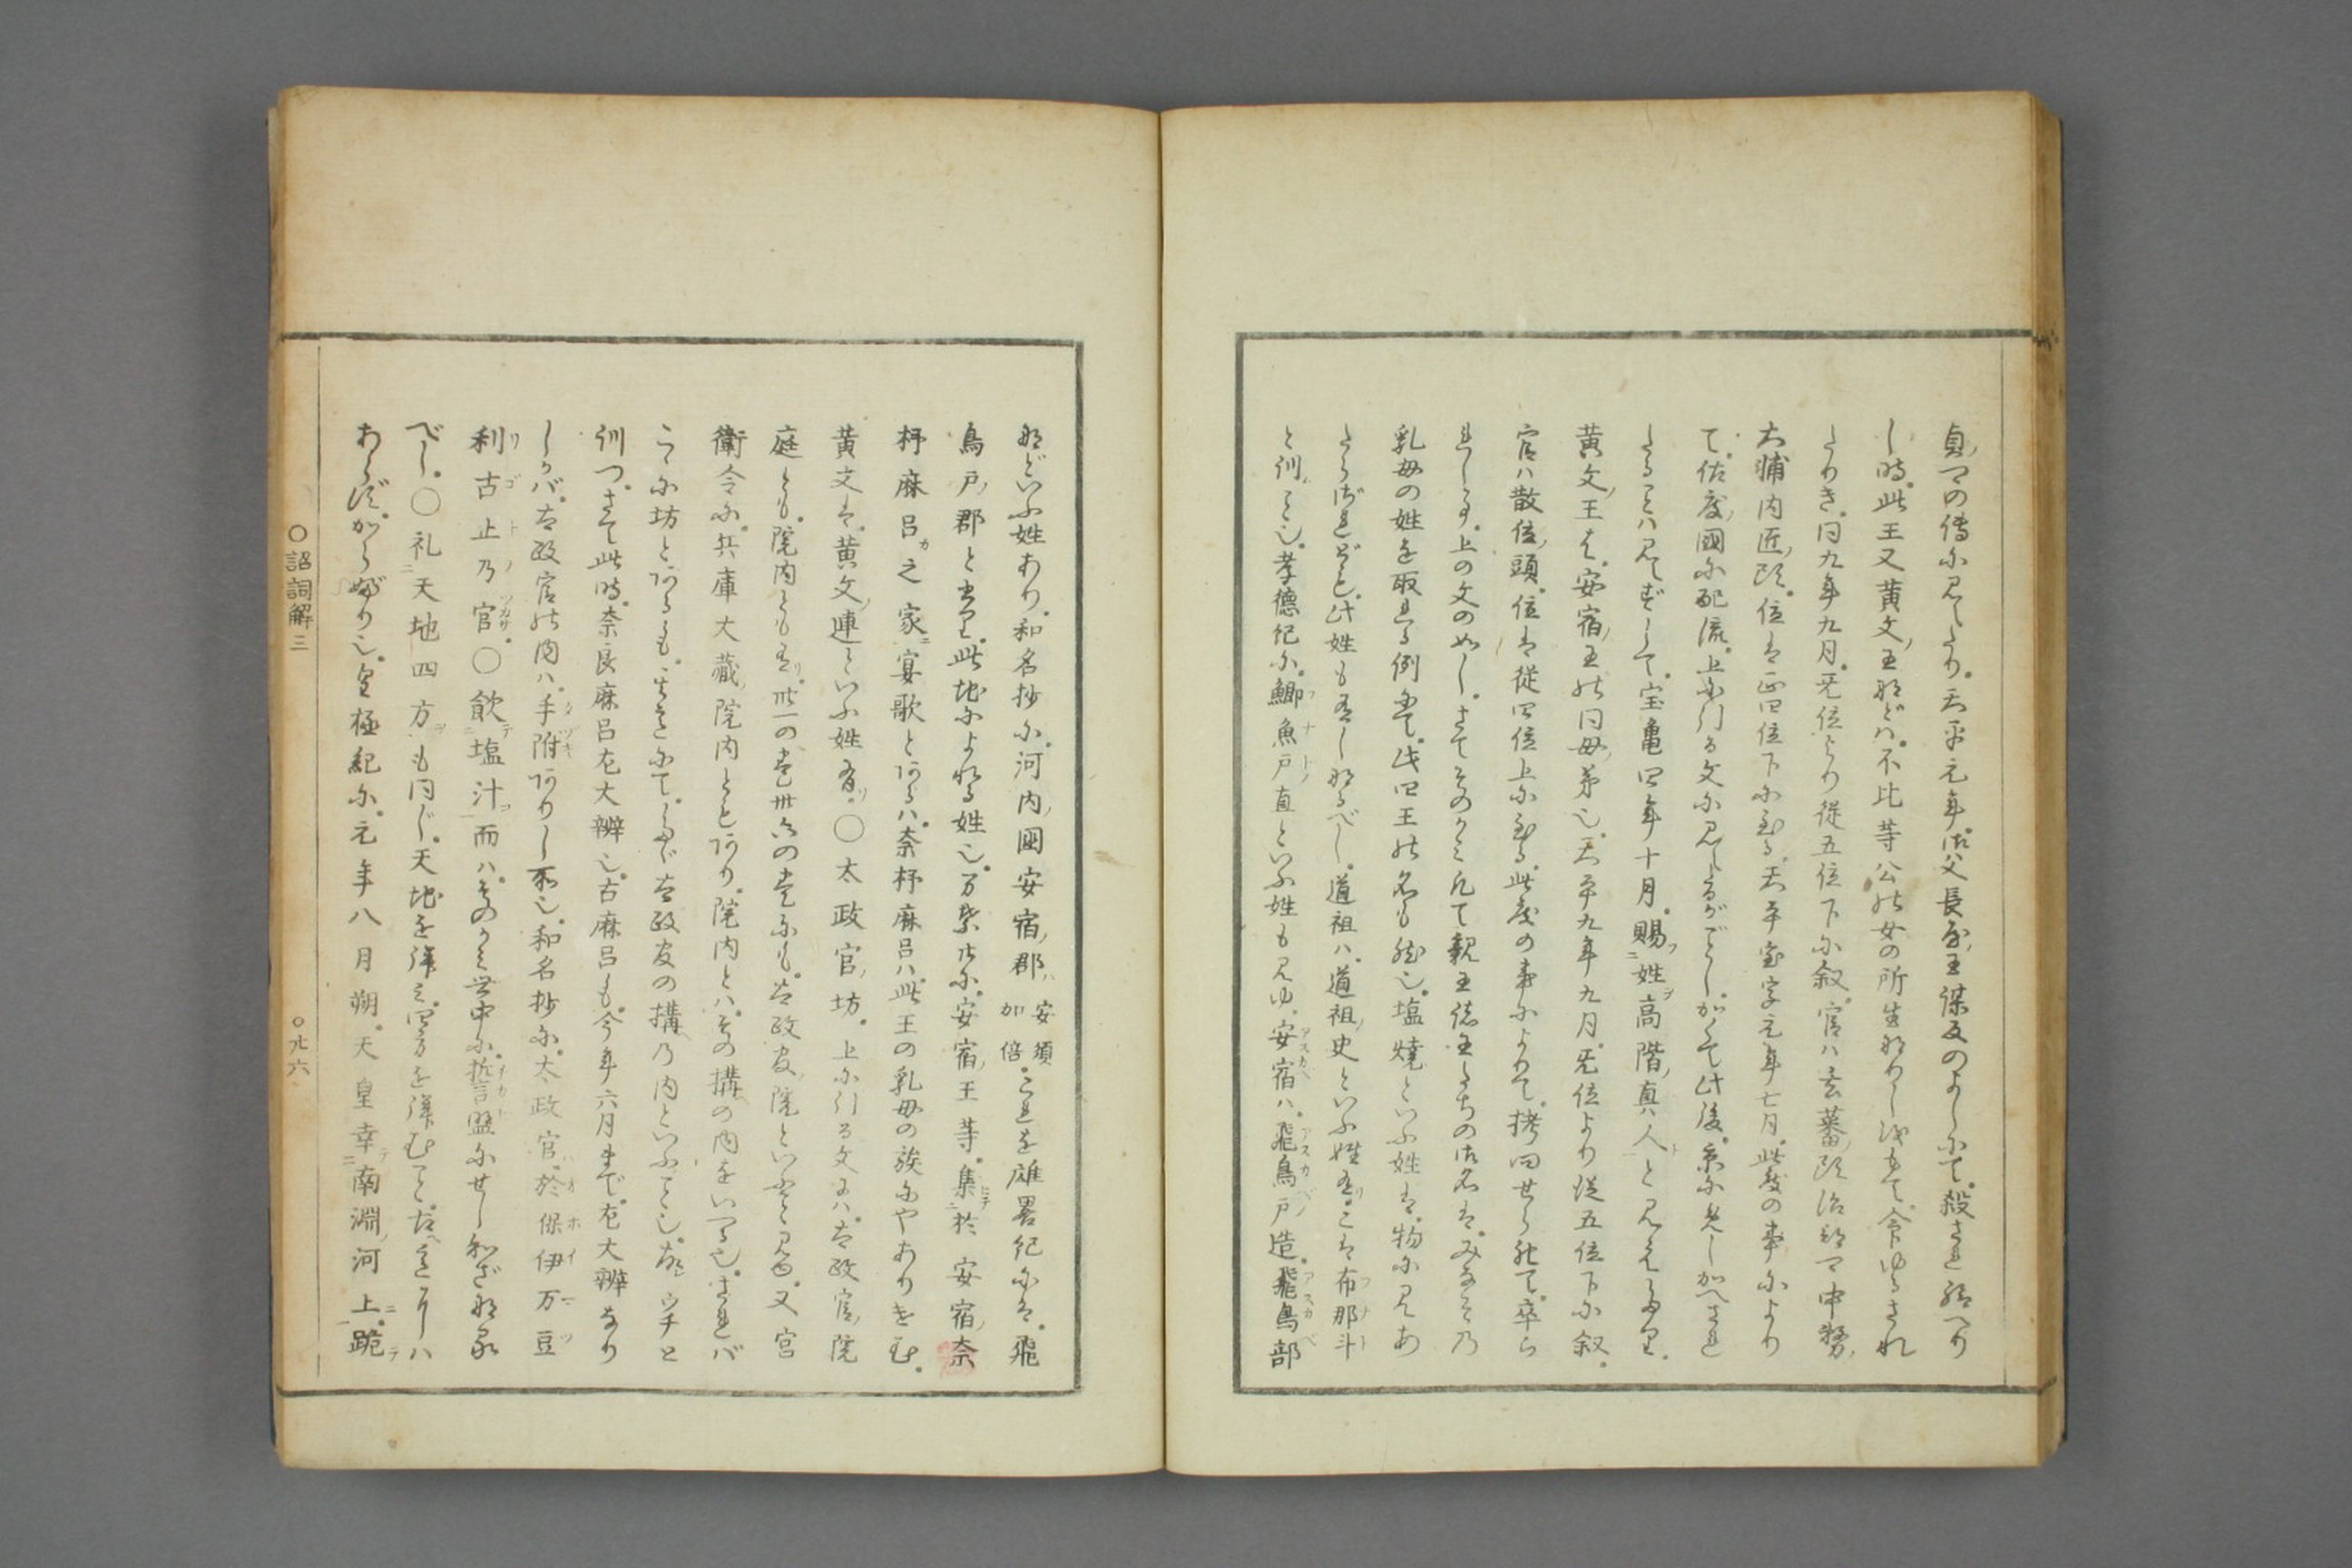 貞ノマの傳に見えたり。天平元年。御父長屋ノ王謀反のよしにて。殺され給へり
し時。此王又黄文ノ王などは。不比等公の女の所生なりし故もて。命ゆるされ
たりき。同九年九月。无位より従五位下に叙。官ハ玄蕃ノ頭治部マ中務ノ
大輔内匠ノ頭。位は正四位下に至る。天平宝字元年七月。此度の事により
て。佐度ノ國に配流。上に引る文に見えたるがごとし。かくて此後。京にめしかへされ
たることハ見えずして。宝亀四年十月。賜姓高階ノ真人と見えたり。
黄文ノ王は。安宿ノ王の同母ノ弟也。天平九年九月。无位より従五位下に叙。
官ハ散位ノ頭。位は従四位上に至る。此度の事によりて。拷問せられて。卒ら
れしこと。上の文の如し。さてそのかみ凡て親王諸王たちの御名は。みなその
乳母の姓を取れる例にて。此四王の名も然也。塩焼といふ姓は。物に見あ
たらざれども。此姓も有しなるべし。道祖ハ。道祖ノ史といふ姓有リ。こは布那斗
と訓ムこと也。孝徳紀に。鯽魚戸ノ直といふ姓も見ゆ。安宿ハ。飛鳥戸ノ造。飛鳥部
などいふ姓あり。和名抄に。河内ノ國安宿ノ郡ハ安須加倍。これを雄畧紀には。飛
鳥戸ノ郡と書り。此地によれる姓也。万葉廿に。安宿ノ王等。集於安宿ノ奈
杼麻呂之家宴歌とあるハ。奈杼麻呂ハ。此王の乳母の族にやありけむ。
黄文は。黄文ノ連といふ姓有リ。〇太政官ノ坊。上に引る文には。太政官ノ院
庭とも。院内とも有リ。卅一の巻卅六の巻にも。太政官ノ院といふこと見ゆ。又宮
衛令に。兵庫大藏ノ院内とともあり。院内とハ。その構の内をいへる也。されバ
こゝに坊とあるも。其意にて。たゞ太政官の構の内といふこと也。故レウチと
訓つ。さて此時。奈良麻呂左大辨也。古麻呂も。今年六月まで。左大辨なり
しかバ。太政官の内ハ。手附ありし所也。和名抄に。太政官ハ於保伊万豆
利古止乃官。〇飲塩汁而ハ。そのかみ世中に。誓盟にせしわざなる
べし。〇礼天地四方も同じ。天地を拝み。四方を拝むこと。古へはことには
あらずかし如此り也。皇極紀に。元年八月朔。天皇幸南淵ノ河上。跪
〇詔詞解三
〇廿六